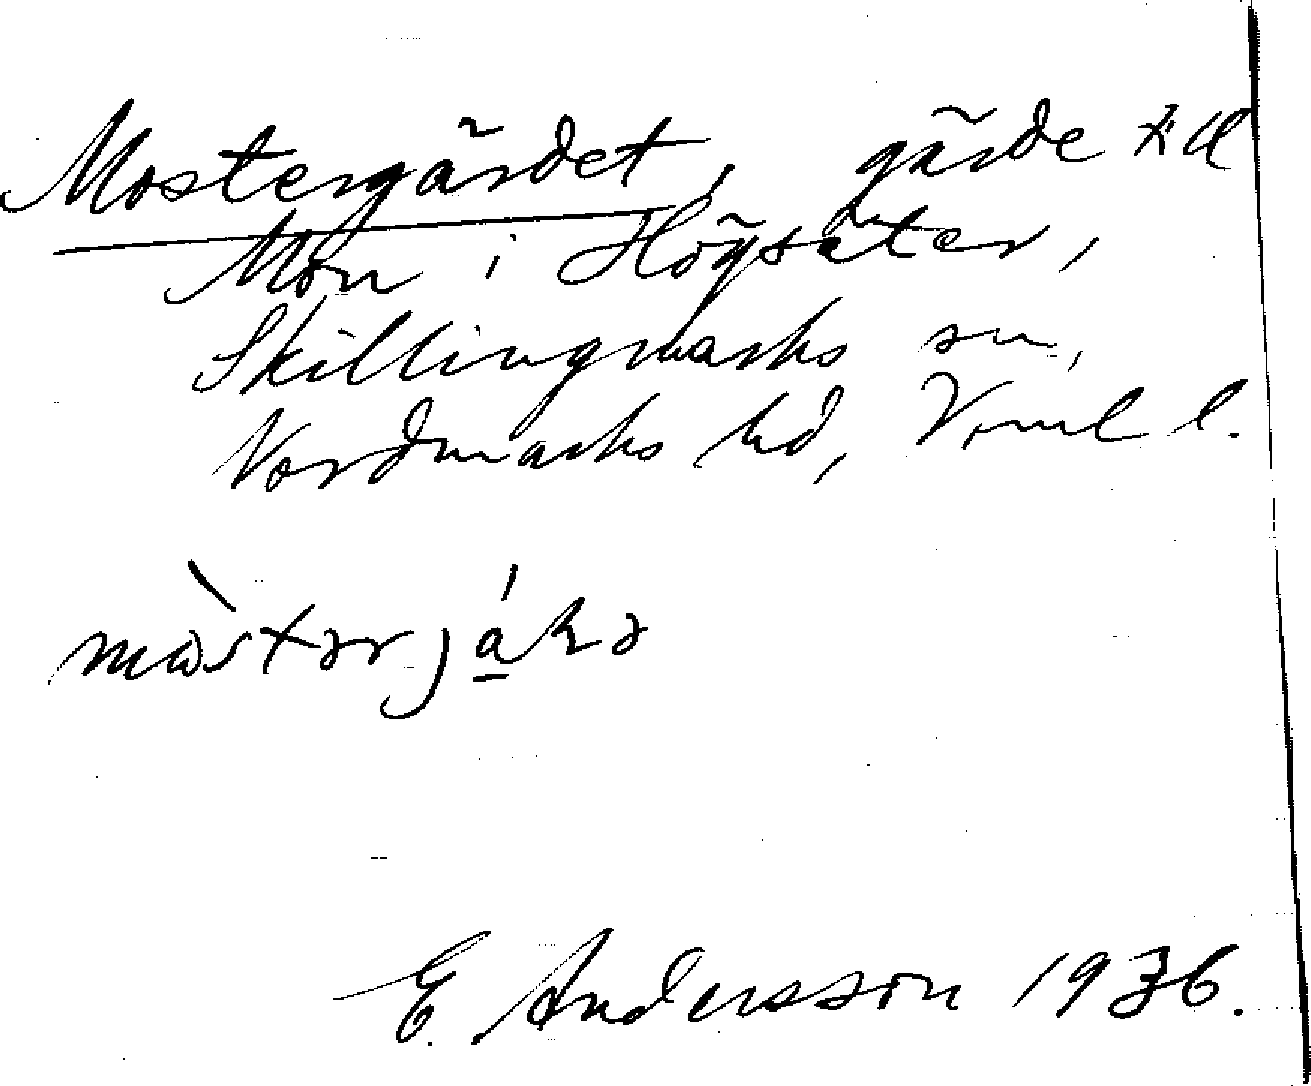 Mostergärdet, gärde till
Mon i Högsäter,
Skillingmarks sn,
Nordmarks hd, Vrml l.
E. Andersson 1936.